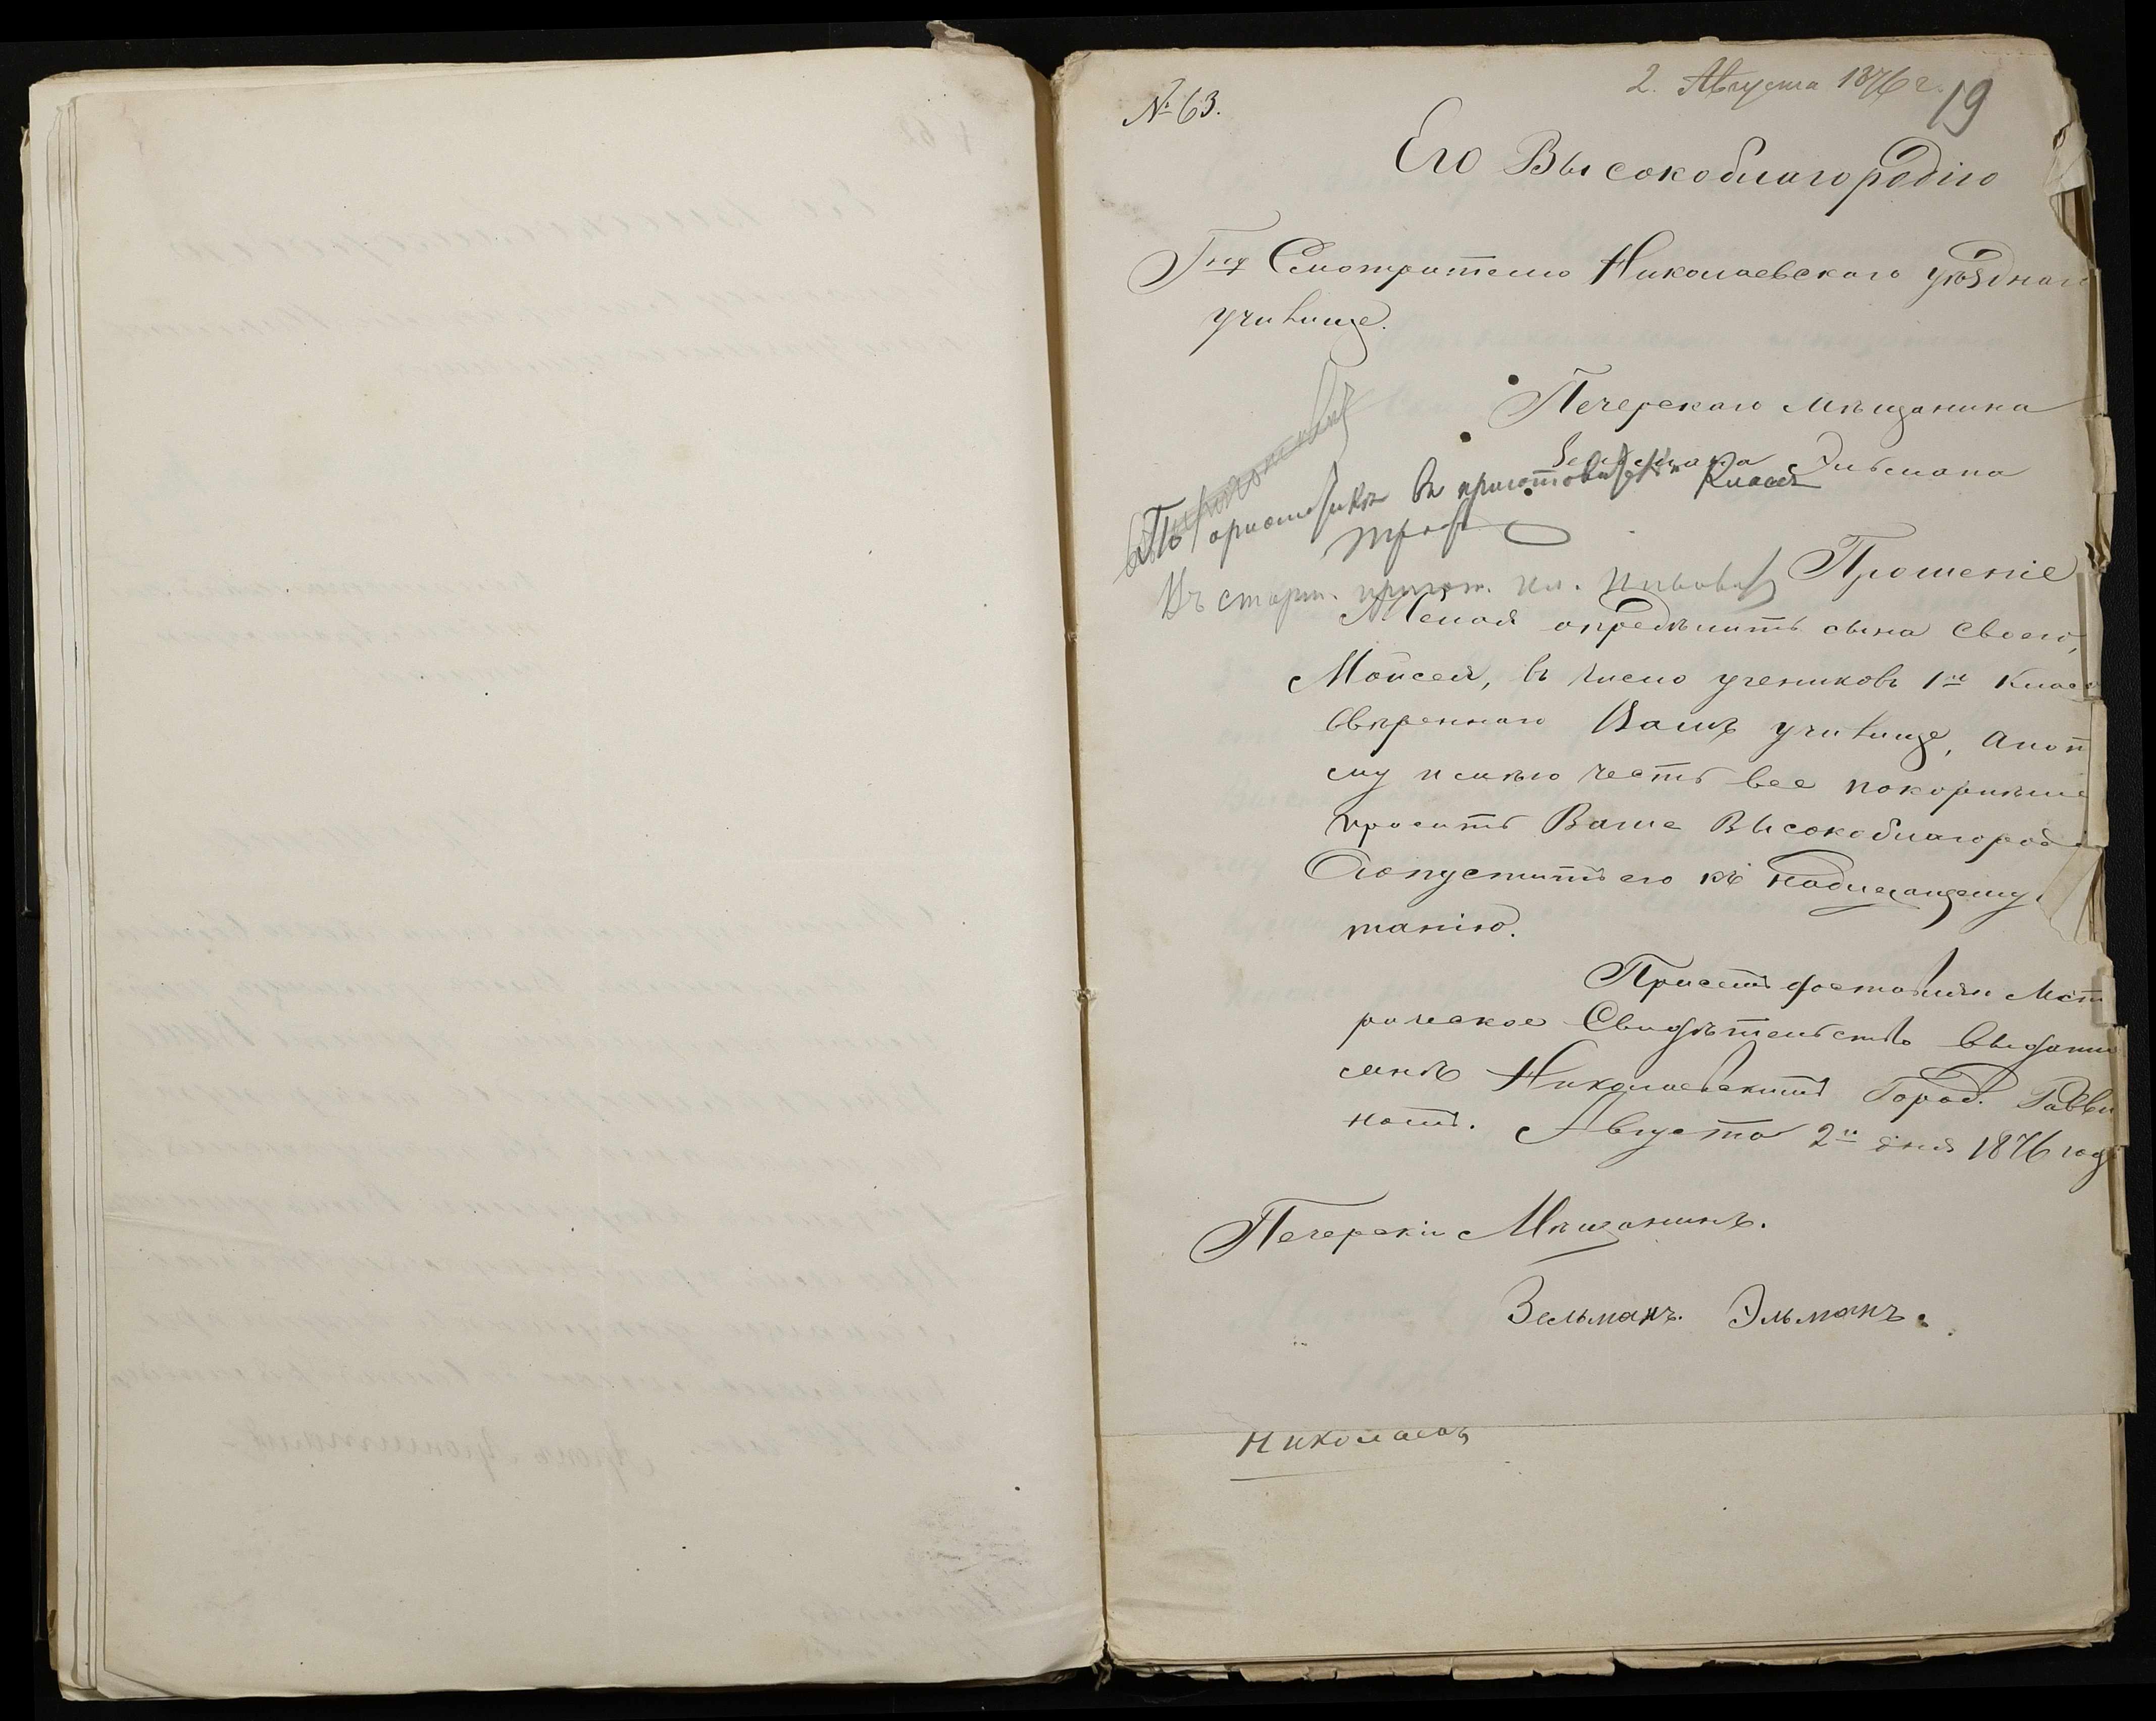 № 63.
2. Августа 1876 г.
19
Его Высокоблагородію
Гну Смотрителю Николаевскаго уѣзднаго
училище.
Печерскаго Мѣщанина
Зельмана Эльмана
въ приготовит. Классъ
Въ старш. пригот. кл.
Прошеніе
Желая опредѣлить сына своего,
Мойсея, въ число учениковъ 1го Клас
ввѣреннаго Вамъ училище, а пот
му имѣю честь все покорнѣйше
просить Ваше Высокоблагород
Допустить его къ надлежащему
танію.
Присемъ доставляя Мет
рическое Свидѣтельство выданн
мнѣ Николаевскимъ Город. Равви
номъ. Августа 2го дня 1876 год
Печерскій Мѣщанинъ.
Зельманъ. Эльманъ.
Николаевъ